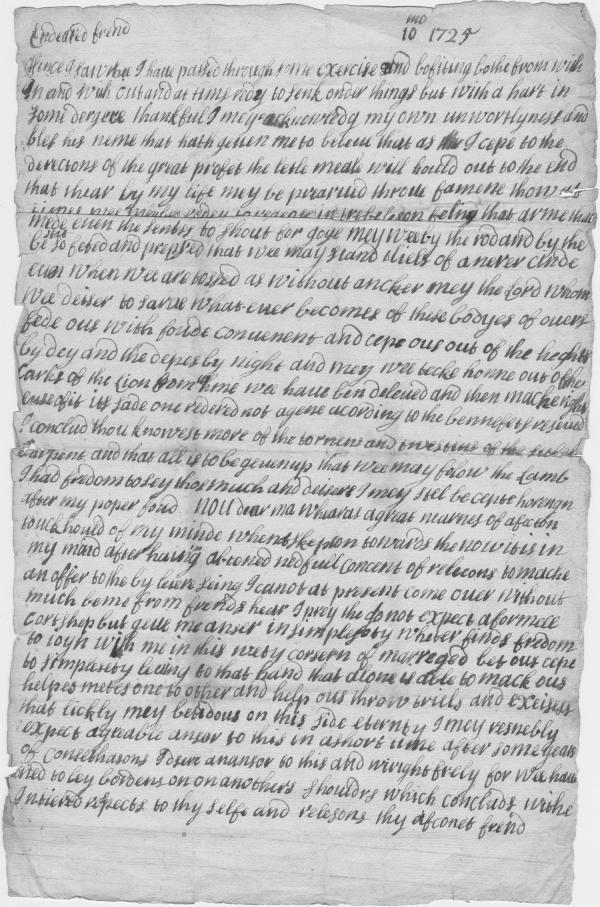 Endeared frend
mo
10 1725
Since I saw thee I have passed through some exercise and bofiting bothe from with
In and with out and at times redy to senk onder things but with a hart in
some degere thankful I mey acknowredg my own unwortlyness and
bles his neme that hath geven me to beleve that as I cepe to the
directons of the great profet the letle meale will hould out to the end
that thear by my life mey be prearvid throw famene thow
times redy to
mede even the sentss to shout for goye mey wee by the rod and by the
be so febed and prepsed that wee may stand a never ende
even when wee are tossed as without ancker mey the Lord whom
wee deiser to sarve what ever becomes of these bodyes of ouers
fede ous with foude convenent and cepe ous out of the heghts
by dey and the depes by night and mey wee becke honne out of the
Carkes of the Lion from time wee have ben deleved and then mache right
euse of it its sade one redered not agene acording to the bennefets reseved
I conclud thou knowest more of the tornens and twestins of the
sarpent and that all is to be geven up that wee may folow the Lamb
I had fredom to sey thos much and deisers I mey stell be cept
after my poper foud now dear whearas a great narnes of afecton
touck hould of my minde when towards the now it is in
my mind after having abtoned nedfull concent of relecons to mache
an offer to the by leter seing I canot at present come over without
much beme from frends hear I prey the do not expect a formell
Cortshep but geve me anser in simplesety whether finds fredom
to ioyn with me in this wayty consern of marreged let ous cepe
to simplesety leveing to that hand that alone is able to mack ous
helpes metes one to other and help ous throw triels and exceises
that lickly mey betidous on this side eternty I mey resnebly
expect agreable anser to this in ashort time after some years
of consethasons I desir an ansor to this and wright frely for wee have
ned to ley bordens on on anothers shouldrs which conclads withe
Intiered respects to thy selfe and relesons thy afconet frend